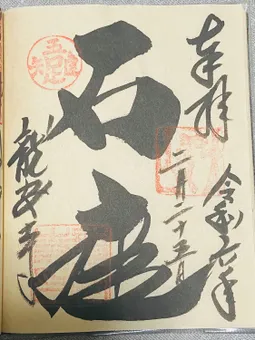 奉拝
令和六年
二月二十五日
石庭
龍安寺